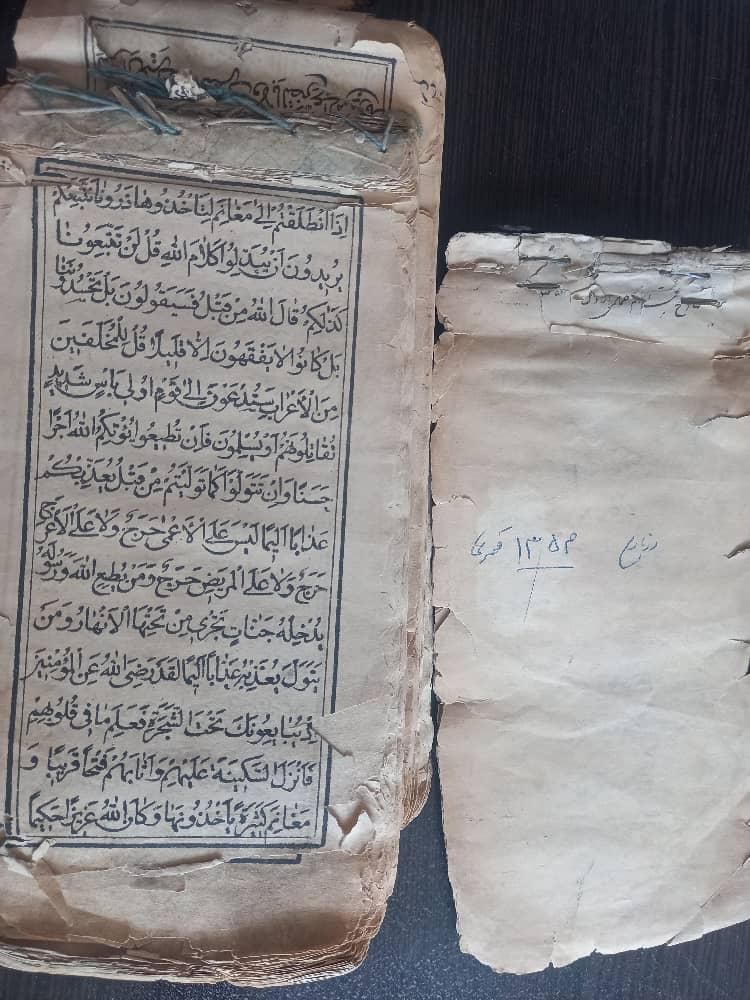 اِذَا انْطَلَقْتُمْ اِلٰى مَغَانِمَ لِتَأْخُذُوهَا ذَرُونَا نَتَّبِعْكُمْ
يُرِيدُونَ اَنْ يُبَدِّلُوا كَلَامَ اللّٰهِ قُلْ لَنْ تَتَّبِعُونَا
كَذٰلِكُمْ قَالَ اللّٰهُ مِنْ قَبْلُ فَسَيَقُولُونَ بَلْ تَحْسُدُونَنَا
بَلْ كَانُوا لَا يَفْقَهُونَ اِلَّا قَلِيلًا قُلْ لِلْمُخَلَّفِينَ
مِنَ الْاَعْرَابِ سَتُدْعَوْنَ اِلٰى قَوْمٍ اُولِى بَاْسٍ شَدِيدٍ
تُقَاتِلُونَهُمْ اَوْ يُسْلِمُونَ فَاِنْ تُطِيعُوا يُؤْتِكُمُ اللّٰهُ اَجْرًا
حَسَنًا وَاِنْ تَتَوَلَّوْا كَمَا تَوَلَّيْتُمْ مِنْ قَبْلُ يُعَذِّبْكُمْ
عَذَابًا اَلِيمًا لَيْسَ عَلَى الْاَعْمٰى حَرَجٌ وَلَا عَلَى الْاَعْرَجِ
حَرَجٌ وَلَا عَلَى الْمَرِيضِ حَرَجٌ وَمَنْ يُطِعِ اللّٰهَ وَرَسُولَهُ
يُدْخِلْهُ جَنَّاتٍ تَجْرِى مِنْ تَحْتِهَا الْاَنْهَارُ وَمَنْ
يَتَوَلَّ يُعَذِّبْهُ عَذَابًا اَلِيمًا لَقَدْ رَضِىَ اللّٰهُ عَنِ الْمُؤْمِنِينَ
اِذْ يُبَايِعُونَكَ تَحْتَ الشَّجَرَةِ فَعَلِمَ مَا فِى قُلُوبِهِمْ
فَاَنْزَلَ السَّكِينَةَ عَلَيْهِمْ وَاَثَابَهُمْ فَتْحًا قَرِيبًا وَ
مَغَانِمَ كَثِيرَةً يَاْخُذُونَهَا وَكَانَ اللّٰهُ عَزِيزًا حَكِيمًا
۱۳۵۲ قمری